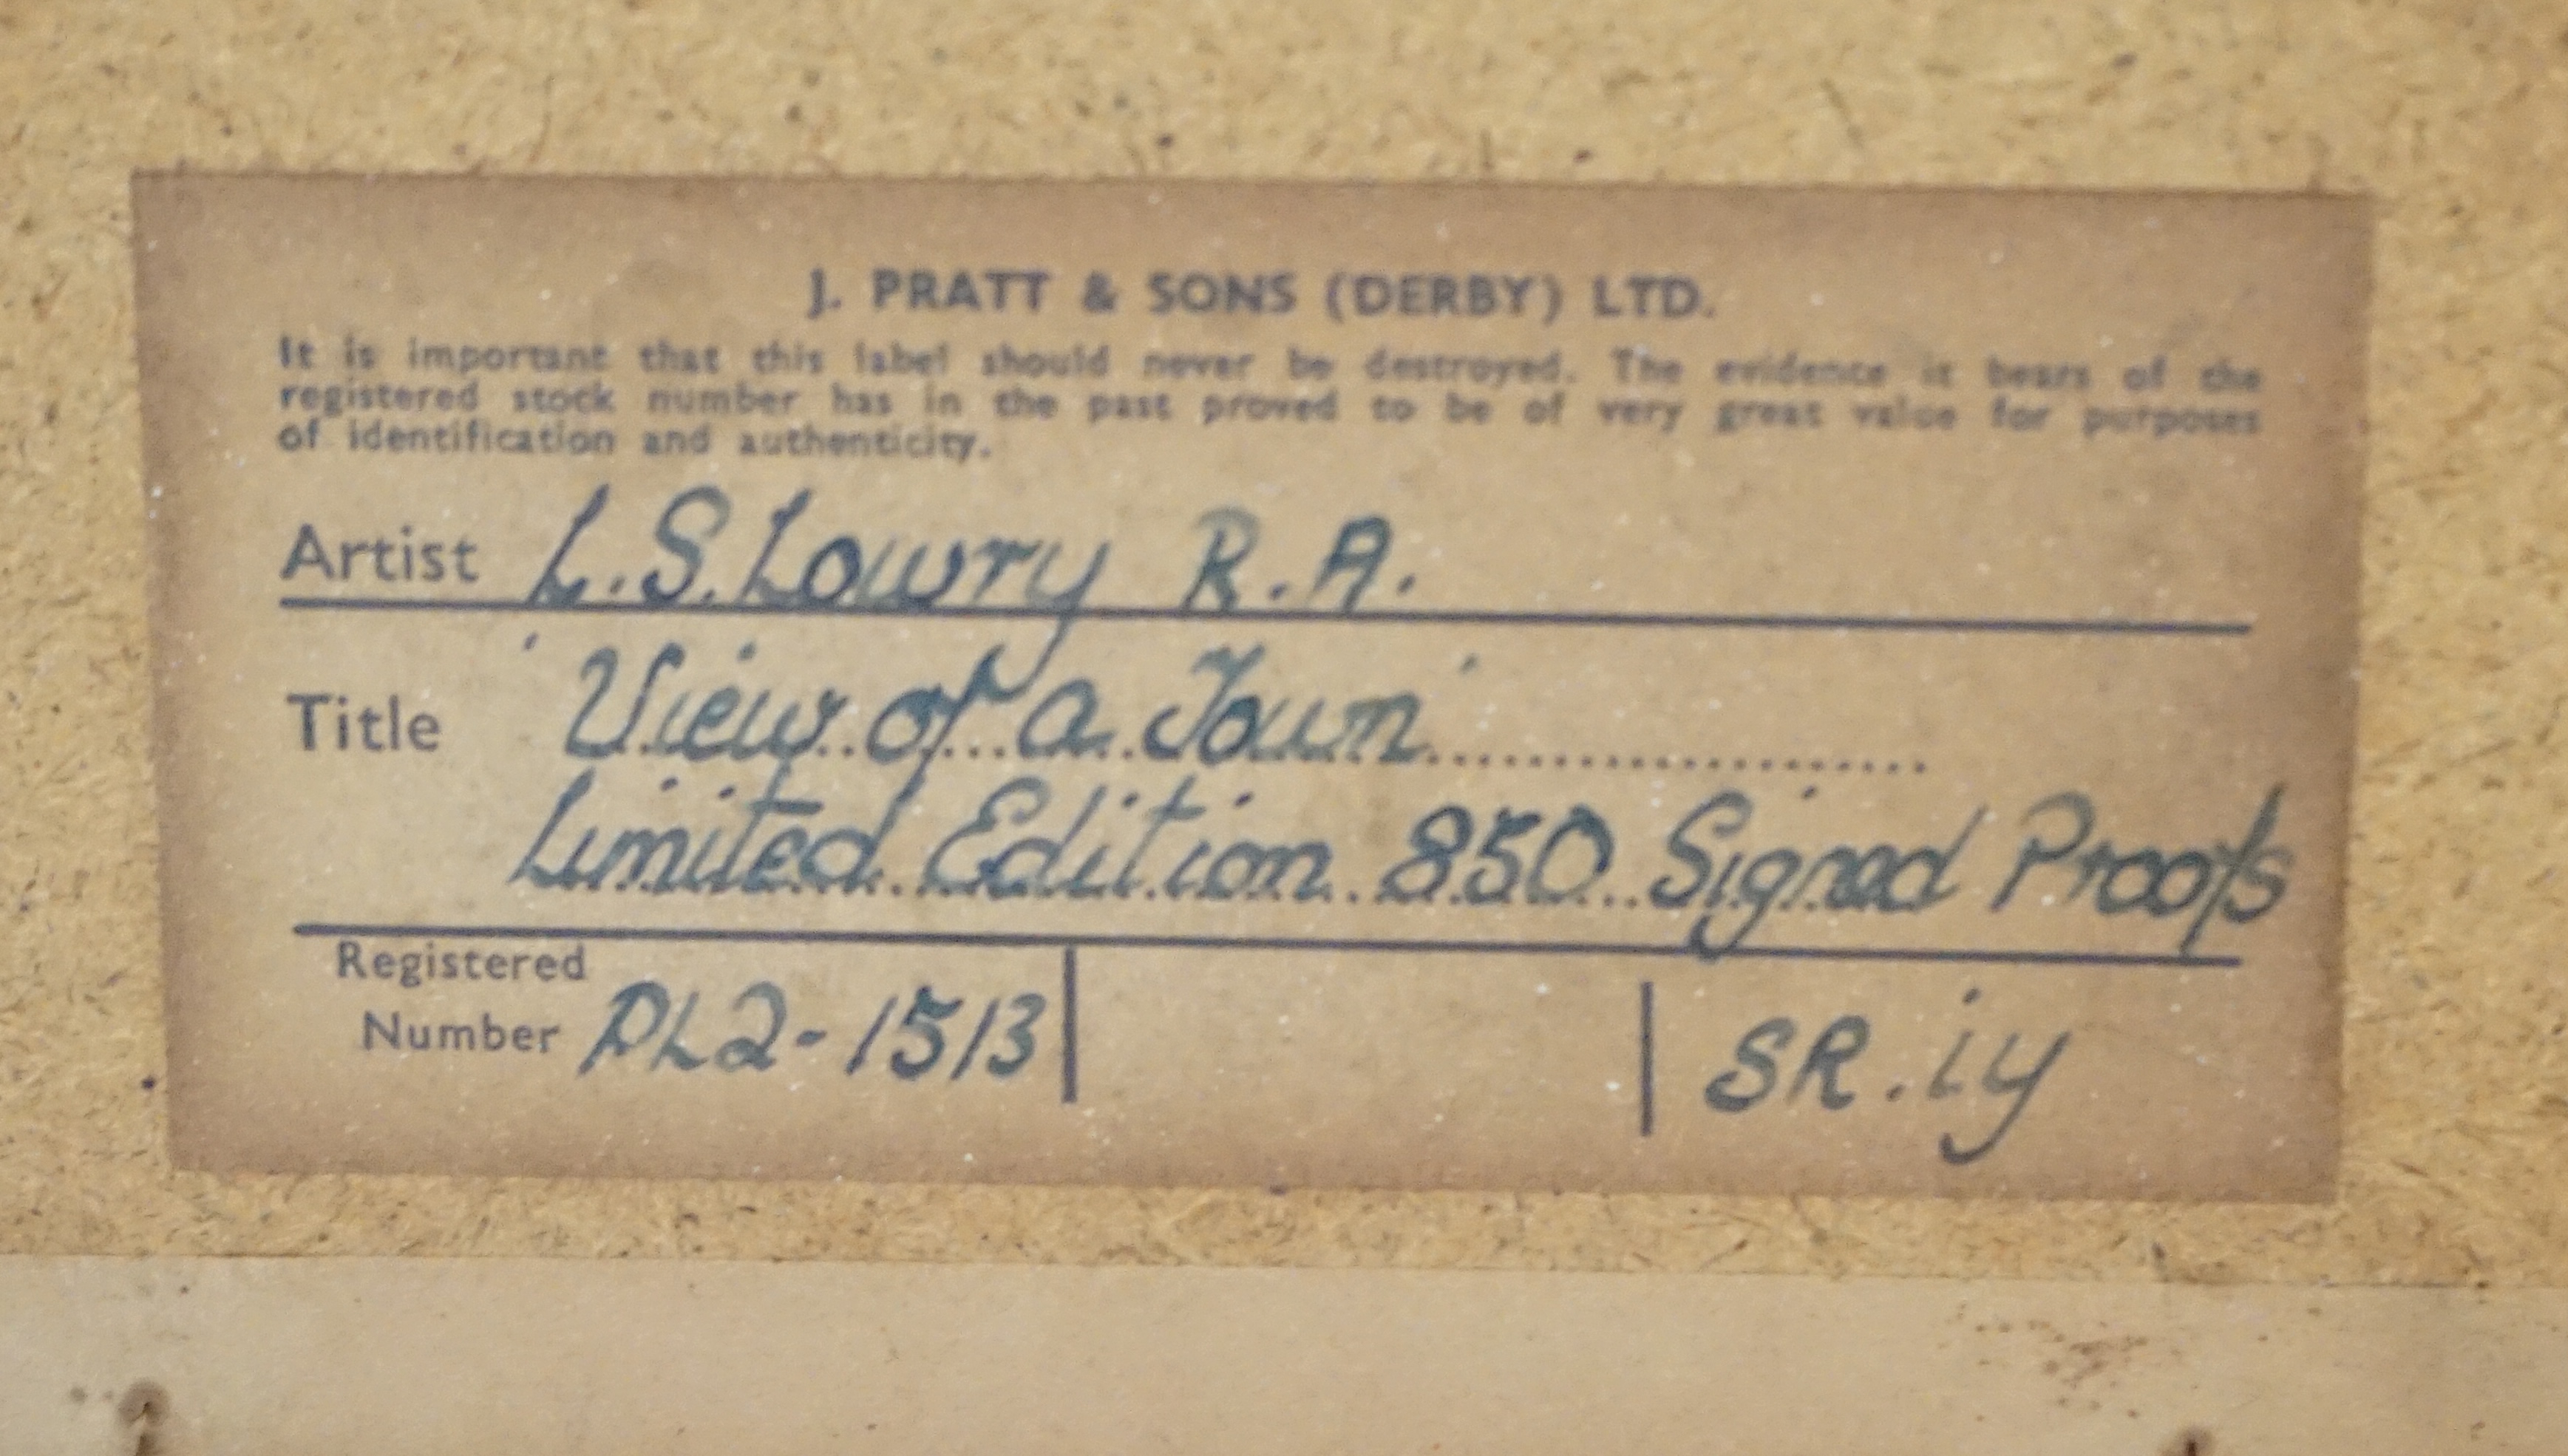 J. PRATT & SONS (DERBY) LTD.
It is important that this label should never be destroyed. The evidence it bears of the
registered stock number has in the past proved to be of very great value for purposes
of identification and authenticity.
Artist L.S. Lowry R.A.
Title 'View of a Town'
Limited Edition 850 Signed Proofs
Registered
Number PL2-1513
SR.iy